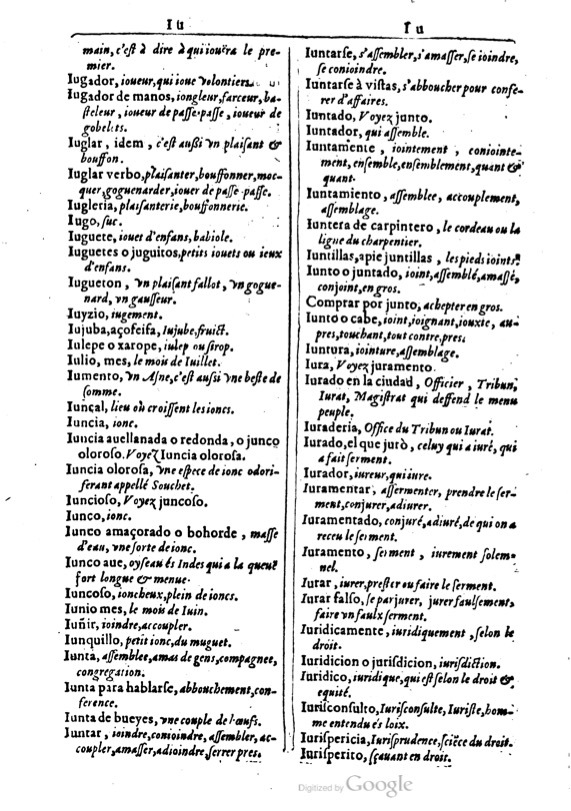 Iu
main, c'est à dire à qui iouëra le pre-
mier.
Iugador, ioueur, qui ioue volontiers.
Iugador de manos, iongleur, farceur, ba-
steleur, ioueur de passe-passe, ioueur de
gobelets.
Iuglar, idem, c'est aussi vn plaisant &
bouffon.
Iuglar verbo, plaisanter, bouffonner, moc-
quer, goguenarder, iouer de passe-passe.
Iugleria, plaisanterie, bouffonnerie.
Iugo, suc.
Iuguete, iouet d'enfans, babiole.
Iuguetes o juguitos, petits iouets ou ieux
d'enfans.
Iugueton, vn plaisant fallot, vn gogue-
nard, vn gausseur.
Iuyzio, iugement.
Iujuba, açofeifa, Iujube, fruict.
Iulepe o xarope, iulep ou sirop.
Iulio, mes, le mois de Iuillet.
Iumento, vn Asne, c'est aussi vne beste de
somme.
Iunçal, lieu où croissent les ioncs.
Iuncia, ionc.
Iuncia auellanada o redonda, o junco
oloroso. Voyez Iuncia olorosa.
Iuncia olorosa, vne espece de ionc odori-
ferant appellé Souchet.
Iuncioso, Voyez juncoso.
Iunco, ionc.
Iunco amaçorado o bohorde, masse
d'eau, vne sorte de ionc.
Iunco aue, oyseau és Indes qui a la queuë
fort longue & menue.
Iuncoso, ioncheux, plein de ioncs.
Iunio mes, le mois de Iuin.
Iuñir, ioindre, accoupler.
Iunquillo, petit ionc, du muguet.
Iunta, assemblee, amas de gens, compagnee,
congregation.
Iunta para hablarse, abbouchement, con-
ference.
Iunta de bueyes, vne couple de bœufs.
Iuntar, ioindre, conioindre, assembler, ac-
coupler, amasser, adioindre, serrer pres.
Iu
Iuntarse, s'assembler, s'amasser, se ioindre,
se conioindre.
Iuntarse à vistas, s'abboucher pour confe-
rer d'affaires.
Iuntado, Voyez junto.
Iuntador, qui assemble.
Iuntamente, iointement, conioincte-
ment, ensemble, ensemblement, quant &
quant.
Iuntamiento, assemblee, accouplement,
assemblage.
Iuntera de carpintero, le cordeau ou la
ligne du charpentier.
Iuntillas, a pie juntillas, les pieds ioints.
Iunto o juntado, ioint, assemblé, amassé,
conjoint, en gros.
Comprar por junto, achepter en gros.
Iunto o cabe, ioint, ioignant, iouxte, au-
pres, touchant, tout contre, pres.
Iuntura, iointure, assemblage.
Iura, Voyez juramento.
Iurado en la ciudad, Officier, Tribun,
Iurat, Magistrat qui deffend le menu
peuple.
Iuraderia, Office du Tribun ou Iurat.
Iurado, el que jurò, celuy qui a iuré, qui
a fait serment.
Iurador, iureur, qui iure.
Iuramentar, assermenter, prendre le ser-
ment, conjurer, adiurer.
Iuramentado, conjuré, adiuré, de qui on a
receu le serment.
Iuramento, serment, iurement solem-
nel.
Iurar, iurer, prester ou faire le serment.
Iurar falso, se parjurer, jurer faulsement,
faire vn faulx serment.
Iuridicamente, iuridiquement, selon le
droit.
Iuridicion o jurisdicion, iurisdiction.
Iuridico, iuridique, qui est selon le droit &
equité.
Iurisconsulto, Iurisconsulte, Iuriste, hom-
me entendu és loix.
Iurispericia, Iurisprudence, sciēce du droit.
Iurisperito, sçauant en droit.
Digitized by Google